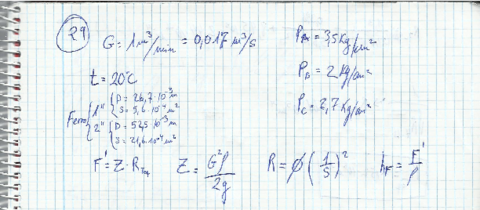 29
G = 1 m³/min = 0,017 m³/s
P_A = 3,5 Kg/cm²
t = 20°C
P_B = 2 Kg/cm²
P_C = 2,7 Kg/cm²
1" { D = 26,7·10⁻³ m
S = 5,6·10⁻⁴ m²
2" { D = 52,5·10⁻³ m
S = 21,6·10⁻⁴ m²
F' = Z · R Z = G²ρ/2g R = ϕ(1/S)² h_F = F'/ρ